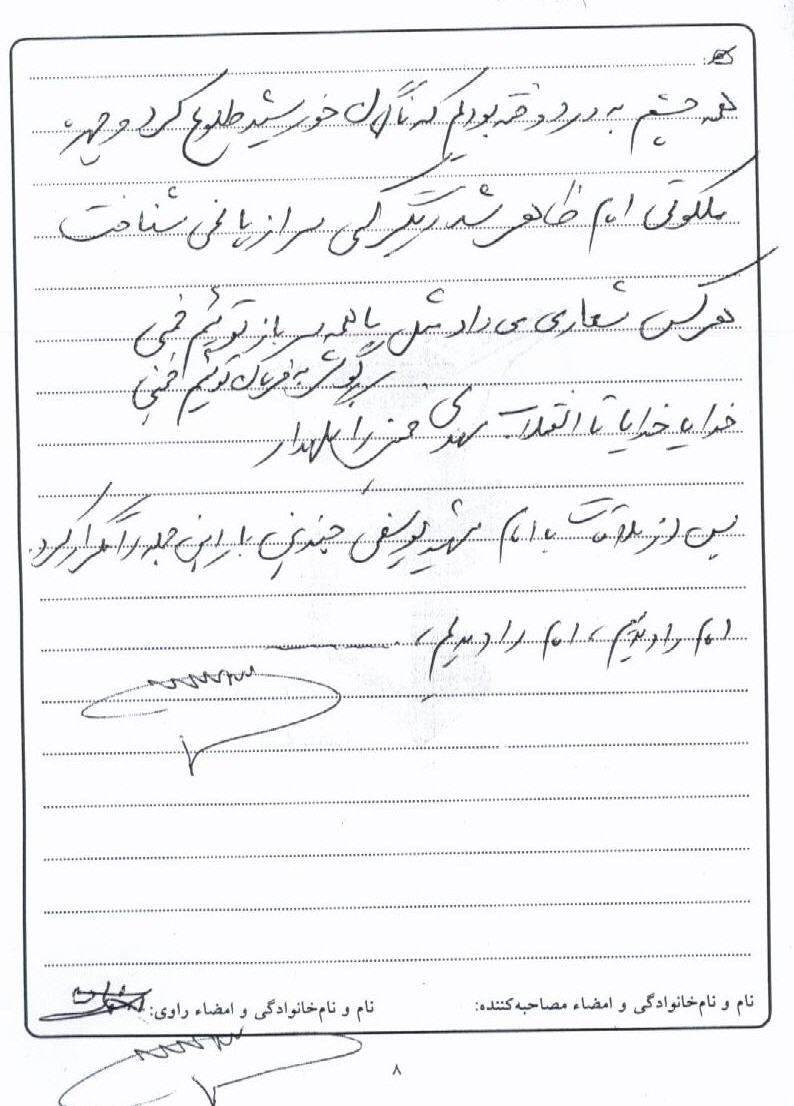 همه چشم به در دوخته بودیم که ناگهان خورشید طلوع کرد و چهره
ملکوتی امام ظاهر شد دیگر کسی سر از پا نمی شناخت
هرکس شعاری می داد مثل ما همه سرباز توئیم خمینی
گوش به فرمان توئیم خمینی
خدایا خدایا تا انقلاب مهدی خمینی را نگهدار
پس از ملاقات با امام شهید یوسفی چندین بار این جمله را تکرار کرد.
امام را دیدیم، امام را دیدیم،
نام و نام‌خانوادگی و امضاء مصاحبه‌کننده: نام و نام‌خانوادگی و امضاء راوی:
۸